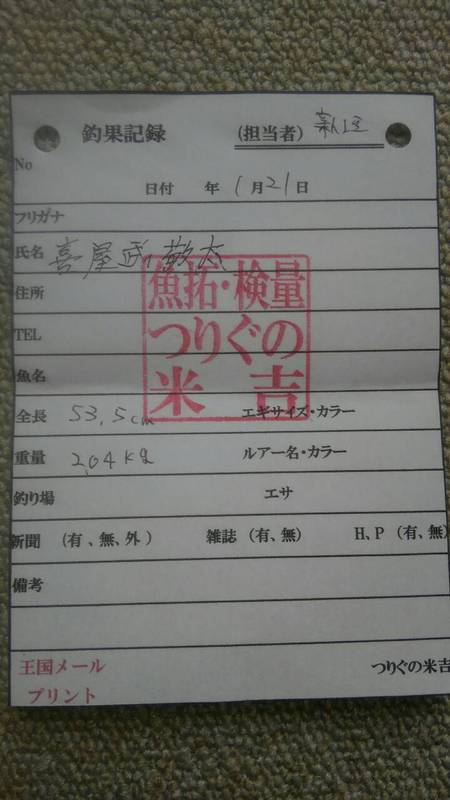 釣果記録 (担当者)
No
日付 年 1月21日
フリガナ
氏名 喜屋武 敬太
住所
魚拓・検量
つりぐの
米吉
TEL
魚名
全長 53.5cm エギサイズ・カラー
重量 2.04kg ルアー名・カラー
釣り場 エサ
新聞 (有、無、外) 雑誌 (有、無) H、P (有、無)
備考
王国メール つりぐの米吉
プリント